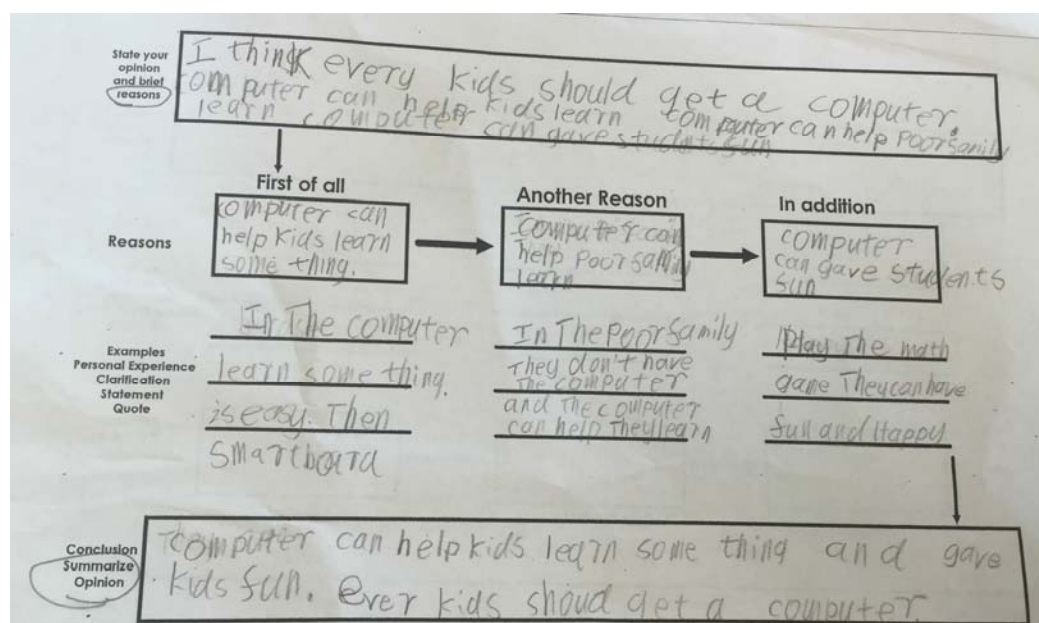 State your
opinion
and brief
reasons
I think every kids should get a computer.
computer can help kids learn computer can help poor family
learn computer can gave students fun
First of all
Another Reason
In addition
Reasons
computer can
help kids learn
some thing.
computer can
help poor family
learn
computer
can gave students
fun
Examples
Personal Experience
Clarification
Statement
Quote
In The computer
learn some thing.
is easy. Then
smartboard
In The poor family
They don't have
The computer
and The computer
can help They learn
Play The math
game They can have
fun and Happy
Conclusion
Summarize
Opinion
computer can help kids learn some thing and gave
kids fun. ever kids shoud get a computer.